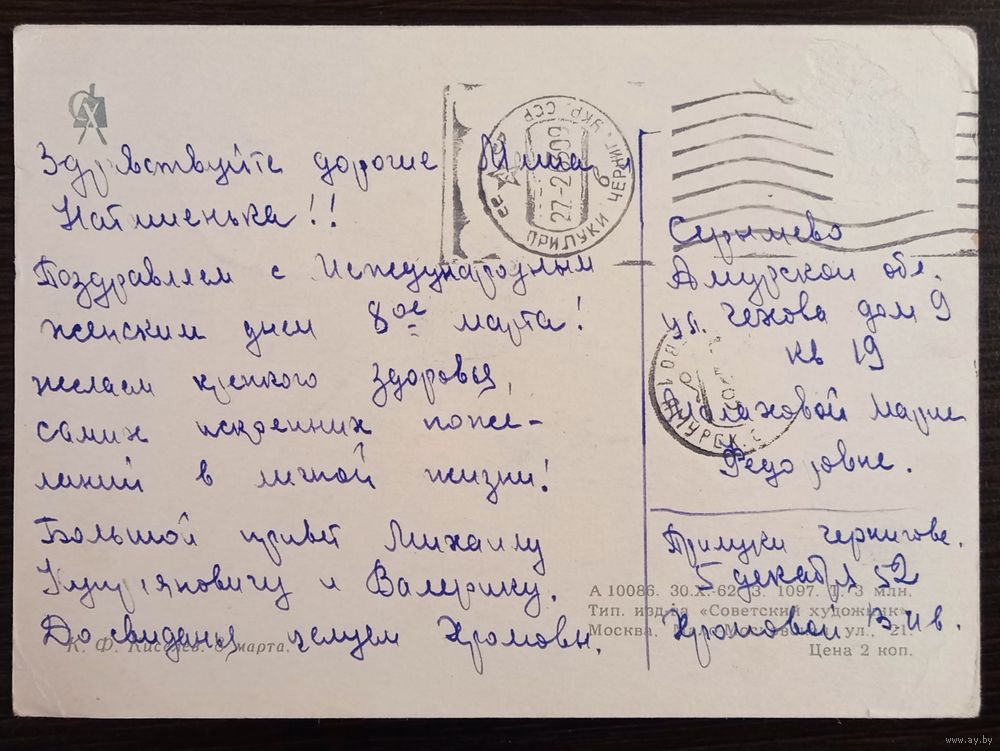 Здравствуйте дорогие
Наташенька!!
Поздравляем с Международным
женским днем 8ое марта!
желаем крепкого здоровья,
самих искренних поже-
ланий в личной жизни!
Большой привет Михаилу
Куприяновичу и Валерику.
До свиданя целуем
К. Ф. Киселев. 8 марта.
ПРИЛУКИ ЧЕРНИГ. УКР. ССР
27-2
Серышево
Амурской обл.
ул. Чехова дом 9
кв 19
Малаховой Марие
Федоровне.
АМУРСК.
Прилуки чернигове.
5 декабря 52
В Ив.
А 10086. 30.X-62. З. 1097. Т. 3 млн.
Тип. изд-ва «Советский художник»
Москва, ул., 21.
Цена 2 коп.
www.ay.by